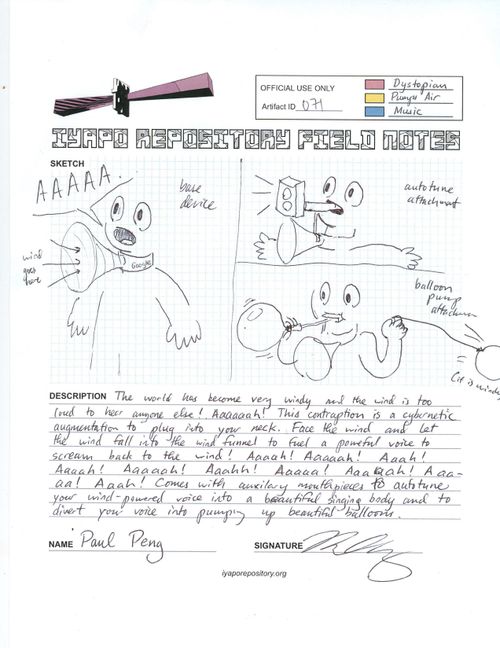 OFFICIAL USE ONLY
Artifact ID 071
Dystopian
Pumps Air
Music
IYAPO REPOSITORY FIELD NOTES
SKETCH
AAAAA.
base
device
wind
goes
here
Google
autotune
attachment
balloon
pump
attachment
(it is windy
DESCRIPTION The world has become very windy and the wind is too
loud to hear anyone else! Aaaaaah! This contraption is a cybernetic
augmentation to plug into your neck. Face the wind and let
the wind fall into the wind funnel to fuel a powerful voice to
scream back to the wind! Aaaah! Aaaaah! Aaah!
Aaaah! Aaaaah! Aaahh! Aaaaa! Aaaaah! Aaa-
aa! Aaah! Comes with auxilary mouthpieces to autotune
your wind-powered voice into a beautiful singing body and to
divert your voice into pumping up beautiful balloons.
NAME Paul Peng
SIGNATURE
iyaporepository.org